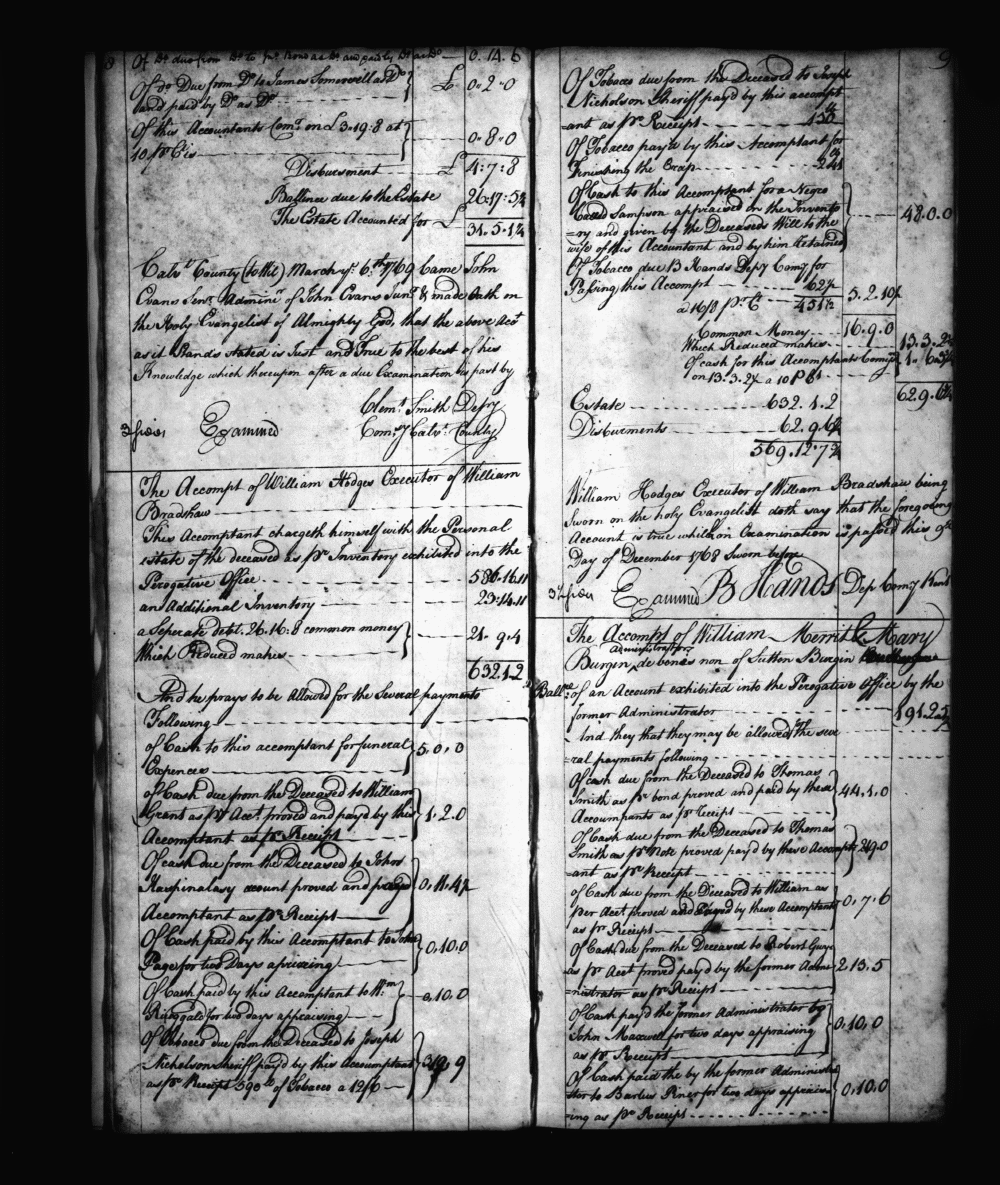 8
Of Do due from Do to and paid by Do as Do 0.14.6
Of do Due from Do to James Somervell as Do
and paid by Do as Do £ 0.2.0
Of this Accountants Comn on £3.19.8 at
10 pr Ct is 0.8.0
Disbursment £ 4:7:8
Ballance due to the Estate 26:17:5½
The Estate Accounted for £ 31.5.1½
Calvt County (to Wit) March ye 6th 1769 Came John
Evans Senr Adminr of John Evans Junr & made Oath on
the Holy Evangelist of Almighty God, that the above Acct
as it Stands stated is Just and True to the best of his
Knowledge which thereupon after a due Examination is past by
Clemt Smith Depty
Examined Comry Calvt County
The Accompt of William Hodges Executor of William
Bradshaw
This Accomptant chargeth himself with the Personal
estate of the deceased as pr Inventory exhibited into the
Perogative Office 586.16.11
an Additional Inventory 23.14.11
a Seperate debt. 26.16.8 common money
Which Reduced makes 21.9.4
632.1.2
And he prays to be Allowed for the Several payments
Following
of Cash to this accomptant for funeral
Expences 5.0.0
of Cash due from the Deceased to William
Grant as pr Acct proved and paid by this
Accomptant as pr Receipt 1.2.0
Of cash due from the Deceased to John
account proved and
Accomptant as pr Receipt 0.11.4½
Of Cash paid by this Accomptant to John
Page for two Days apraizing 0.10.0
Of Cash paid by this Accomptant to Wm
Ringgold for two days appraising 0.10.0
Of Tobacco due from the Deceased to Joseph
Nicholson Sheriff pay'd by this Accomptant
as pr Receipt 590 lb of Tobacco a 12/6 3.19.9
9
Of Tobacco due from the Deceased to Joseph
Nicholson Sheriff pay'd by this accompt
=ant as pr Receipt 150
Of Tobacco pay'd by this Accomptant for
Finishing the Crop
Of Cash to this Accomptant for a Negro
Called Sampson appraised in the Invento
=ry and given by the Deceaseds Will to the
wife of this Accountant and by him Retained 48.0.0
Of Tobacco due B Hands Depy Comy for
Passing this Accompt
a 16/8 pr Ct 5.2.10½
Common Money 16.9.0
Which Reduced makes 13.3.2½
Of cash for this Accomptants Comy
on 13.3.2½ a 10 P Ct 1.6.3¾
62.9.6¾
Estate 632.1.2
Disburments 62.9.6¾
569.12.7¼
William Hodges Executor of William Bradshaw being
Sworn on the holy Evangelist doth say that the foregoing
Account is true which on Examination is passed this 9th
Day of December 1768 Sworn before
Examined B Hands Dep Comy Kent
The Accompt of William Merrit & Mary
Burgin administrators de bones non of Sutton Burgin
Ballce of an Account exhibited into the Perogative Office by the
former Administrator
And they that they may be allowed the seve
=ral payments following
Of cash due from the Deceased to Thomas
Smith as pr bond proved and paid by these
Accoumptants as pr receipt 44.1.0
Of Cash due from the Deceased to Thomas
Smith as pr Note proved pay'd by these Accompt
ant as pr Receipt
of Cash due from the Deceased to William as
per Acct proved and Payed by these Accomptants
as pr Receipt 0.7.6
Of Cash due from the Deceased to Robert
as pr Acct proved pay'd by the former Admi
=nistrator as pr Receipt 2.13.5
Of Cash pay'd the former Administrator by
John Maxwell for two days appraising
as pr Receipt 0.10.0
Of Cash paid the by the former Administra
tor to Bartus Piner for two days appraise
=ing as pr Receipt 0.10.0